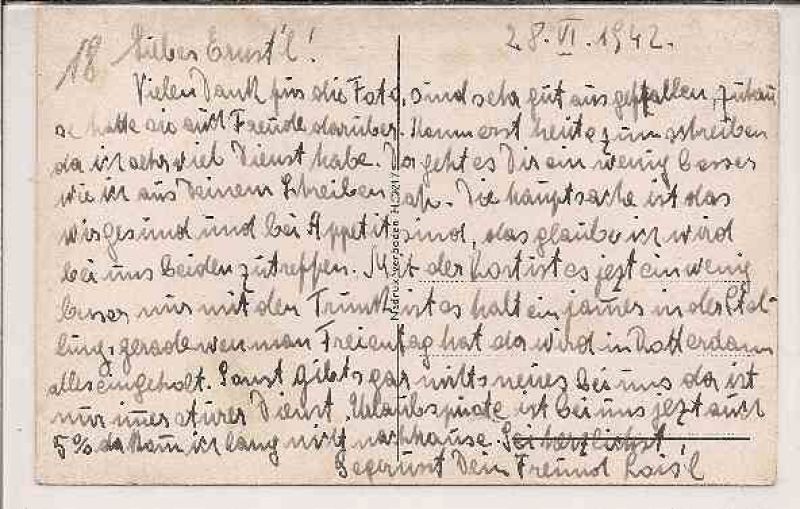 18 Lieber Ernst'l! 28.VI.1942.
Vielen Dank für die Foto, sind sehr gut ausgefallen, zuhau
se hatte sie auch Freude darüber. Komm erst heute zum schreiben
da ich sehr viel Dienst habe. Dir geht es Dir ein wenig besser
wie ich aus Deinem Schreiben sah. Die hauptsache ist das
wir gesund und bei Appetit sind, das glaube ich wird
bei uns beiden zutreffen. Mit der Kost ist es jezt ein wenig
besser nur mit den Trunk ist es halt ein jamer in der Stel-
lung, gerade wen man Freientag hat da wird in Rotterdam
alles eingeholt. Sonst gibts gar nichts neues bei uns da ist
nur imer sturer Dienst. Urlaubsquote ist bei uns jezt auch
5% da kom ich lang nicht nachhause. Sei herzlichst,
Gegrüsst Dein Freund Loisl
Nadruk verboden